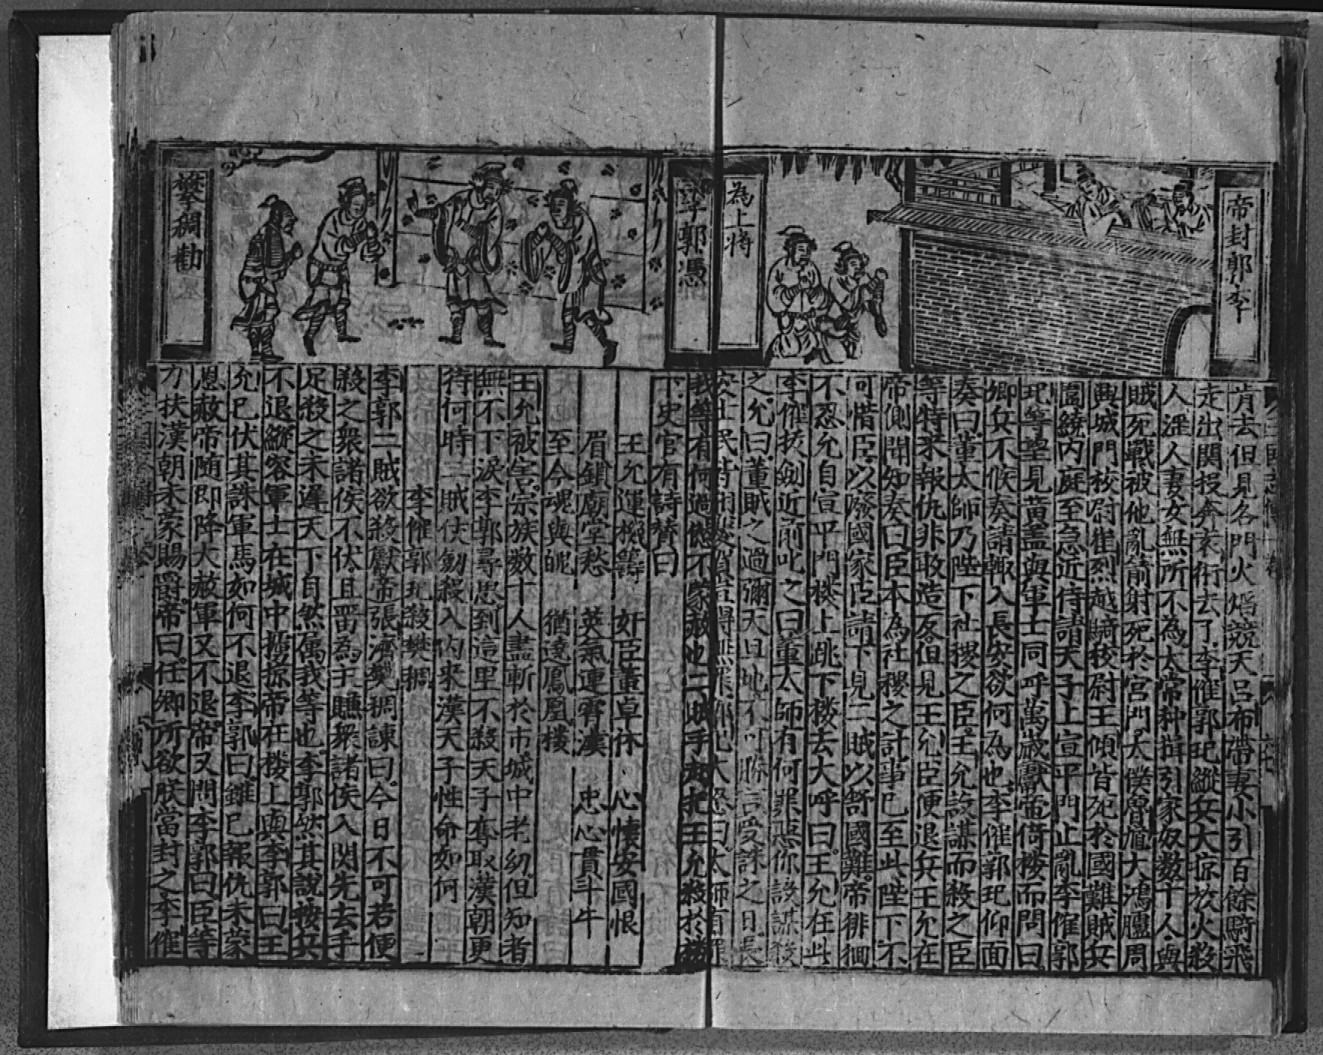 帝封郭李
為上將
李郭憑
樊稠勸
肯去但見各門火焰競天呂布帶妻小引百餘騎飛
走出關投奔袁術去了李傕郭汜縱兵大掠放火殺
人淫人妻女無所不為太常种拂引家奴數十人與
賊死戰被他亂箭射死於宮門太僕魯馗大鴻臚周
奐城門校尉崔烈越騎校尉王傾皆死於國難賊兵
圍繞內庭至急近侍請天子上宣平門止亂李傕郭
汜等望見黃蓋與軍士同呼萬歲獻帝倚樓而問曰
卿兵不候奏請輙入長安欲何為也李傕郭汜仰面
奏曰董太師乃陛下社稷之臣王允設謀而殺之臣
等特來報仇非敢造反但見王允臣便退兵王允在
帝側聞知奏曰臣本為社稷之計事已至此陛下不
可惜臣以廢國家臣請下見二賊以紓國難帝徘徊
不忍允自宣平門樓上跳下樓去大呼曰王允在此
李傕拔劍近前叱之曰董太師有何罪惡你設謀殺
之允曰董賊之過彌天曰地不可勝言受誅之日長
安士民皆相慶賀豈得無罪郭汜大怒曰太師有罪
我等有何過惡不蒙赦也二賊手起把王允殺於樓
下史官有詩贊曰
王允運機籌 奸臣董卓休 心懷安國恨
眉鎖廟堂愁 英氣連霄漢 忠心貫斗牛
至今魂與魄 猶遶鳳凰樓
王允被害宗族數十人盡斬於市城中老幼但知者
無不下淚李郭尋思到這里不殺天子奪取漢朝更
待何時二賊仗劍殺入內來漢天子性命如何
李傕郭汜殺樊稠
李郭二賊欲殺獻帝張濟樊稠諫曰今日不可若便
殺之衆諸侯不伏且罟為王賺衆諸侯入関先去手
足殺之未遲天下自然属我等也李郭然其說按兵
不退縱容軍士在城中擄掠帝在樓上與李郭曰王
允已伏其誅軍馬如何不退李郭曰雖已報仇未蒙
恩赦帝随即降大赦軍又不退帝又問李郭曰臣等
力扶漢朝未家賜爵帝曰任卿所欲朕當封之李傕